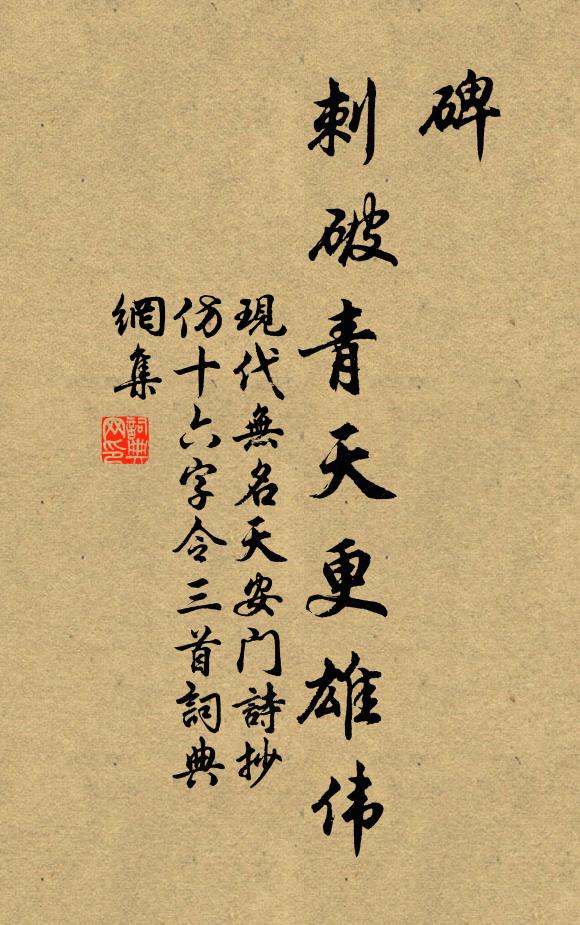 碑
刺破青天更雄伟
現代無名天安门詩抄
仿十六字令三首詞典
網集
詞典
网印